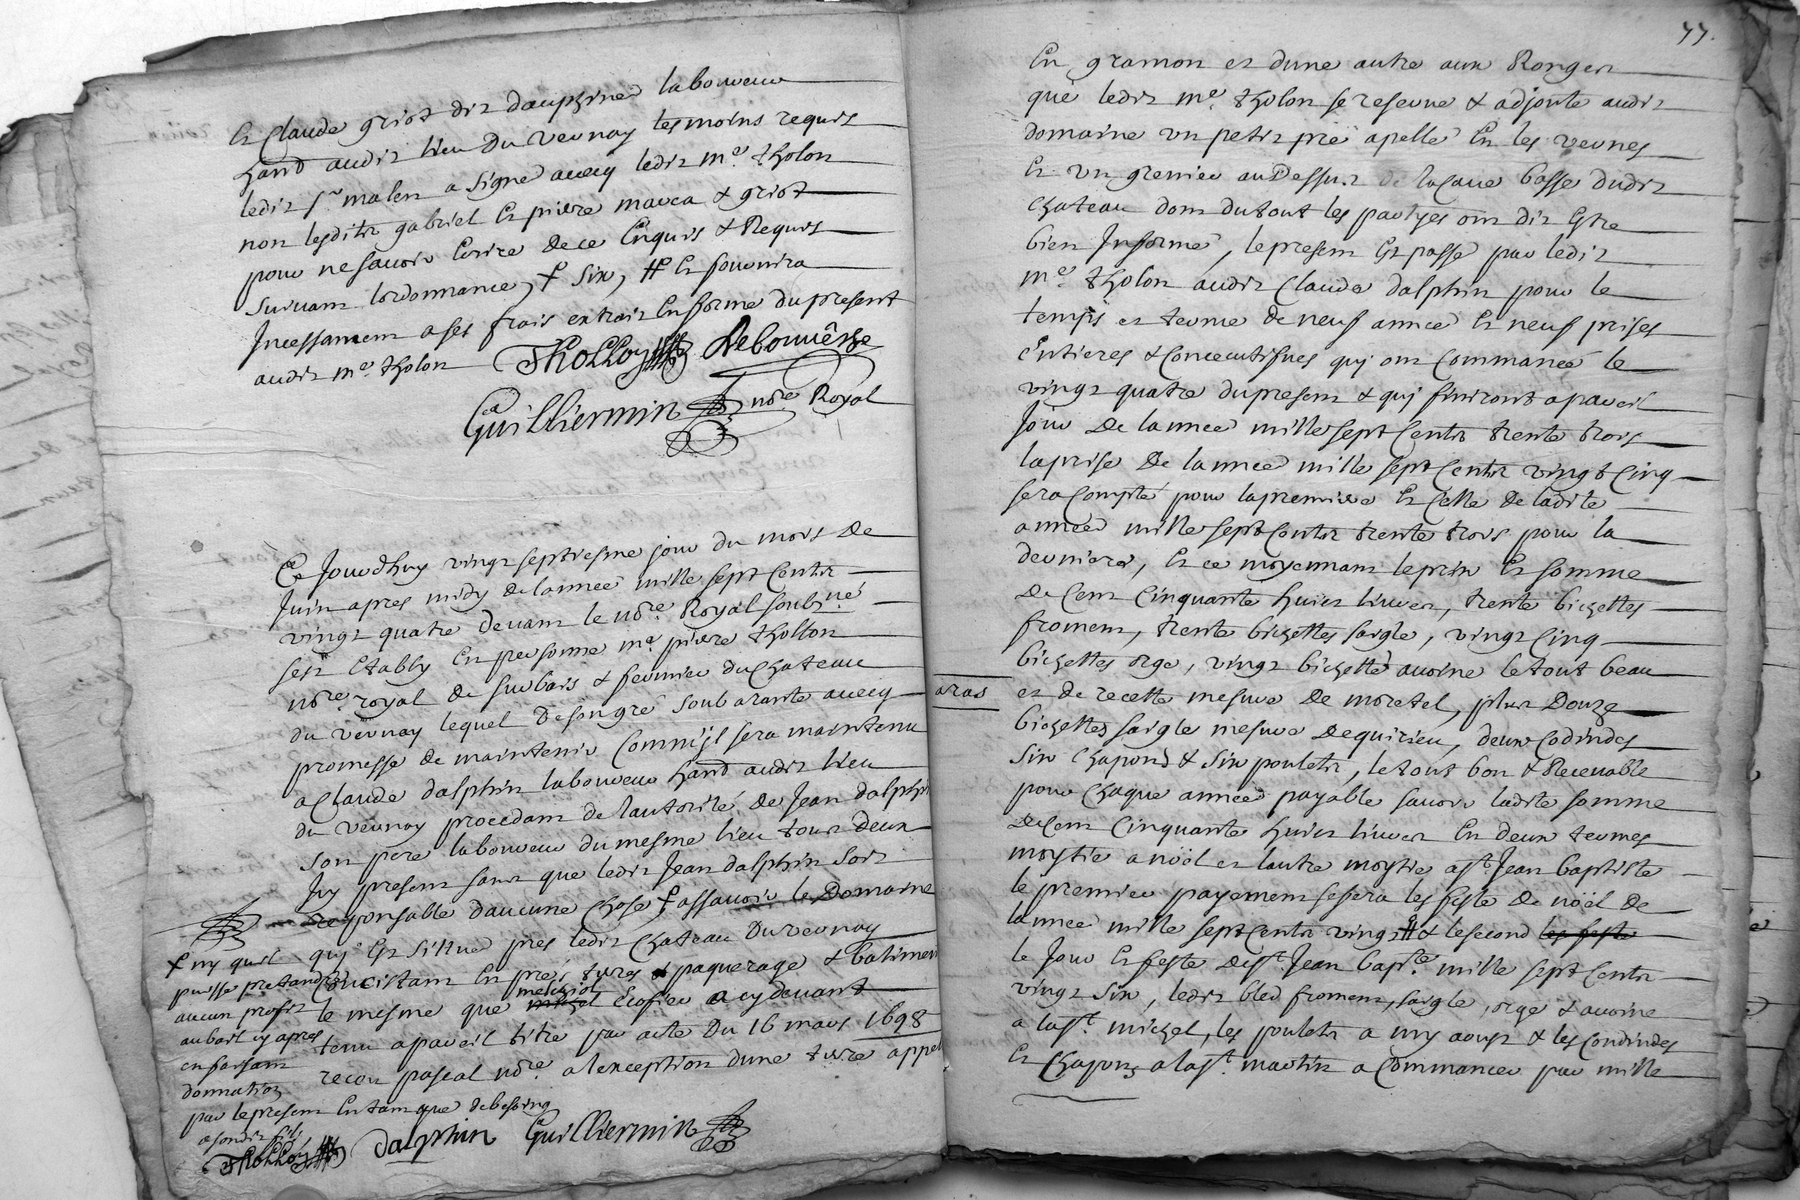 Et Claude griot dit dauphine laboureur
hand audit lieu du vernay tesmoins requis
ledit sr malen a signé avecq ledit me tholon
non lesdits gabriel et pierre mavca & griot
pour ne savoir escrire de ce Enquis & Requis
suivant lordonnance, + six, # et fournira
Incessament a ses frais extrait En forme du present
audit me tholon Thollon Debouvêsse
Guilliermin nore Royal
Ce Jourdhuy vingt septiesme jour du mois de
Juin apres midy de lannée mille sept Cents
vingt quatre devant le nore Royal soubsné
sest Etably En personne me pierre thollon
nore royal de surbais & fermier du Chateau
du vernay lequel de son gré soub arante avecq
promesse de maintenir Comm'jl sera maintenu
a Claude dalphin laboureur hand audit lieu
du vernay procedant de lautorité de Jean dalphin
son pere laboureur du mesme lieu tous deux
Jcy present sans que ledit Jean dalphin soit
responsable daucune Chose + assavoir le Domaine
quj Est sittué pres ledit Chateau Du vernay
Concistant En prés terres & paquerage & batiment
le mesme que melchiol Ecofier a cy devant
tenu a pareil titre par acte Du 16 mars 1698
receu pascal nore a lexception dune terre appel
+ ny quil
puisse pretandre
aucun profit
au bail cy apres
en faisant
donnation
par le present En tant que de besoing
a sondit fils
Thollon dalphin Guilliermin
77.
En gramon et dune autre aux Ronger
que ledit me tholon se reserve & adjoute audit
domaine un petit pré apellé En les vernes
Et un grenier au Dessus de la Cave basse dudit
Chateau dont du tout les partyes ont dit Estre
bien Informé, le present Est passé par ledit
me tholon audit Claude dalphin pour le
temps et terme de neuf année Et neuf prises
Entieres & Concecutifves quj ont Commancé le
vingt quatre du present & quj finiront a pareil
Jour de lannée mille sept Cents trente trois
la prise de lannée mille sept Cents vingt Cinq
sera Compté pour la premiere Et Celle de ladite
année mille sept Cents trente trois pour la
derniere, Et ce moyennant le prix Et somme
de Cent Cinquante huict livres, trente bichettes
froment, trente bichettes soigle, vingt Cinq
bichettes orge, vingt bichette avoine le tout beau
et de recette mesure de moretel, plus Douze
aras
bichettes soigle mesure de quirieu, deux Codindes
six Chapond & six poulets, le tout bon & Recevable
pour Chaque année payable savoir ladite somme
de Cent Cinquante huict livres En deux termes
moytié a nöel et lautre moytié a st Jean baptiste
le premier payement se fera les feste de nöel de
lannée mille sept Cents vingt # & le second les feste
le Jour Et feste de st Jean bapte mille sept Cents
vingt six, ledit bled froment, soigle, orge & avoine
a la st michel, les poulets a my aoust & les Condindes
Et Chapons a la st martin a Commancer par mille